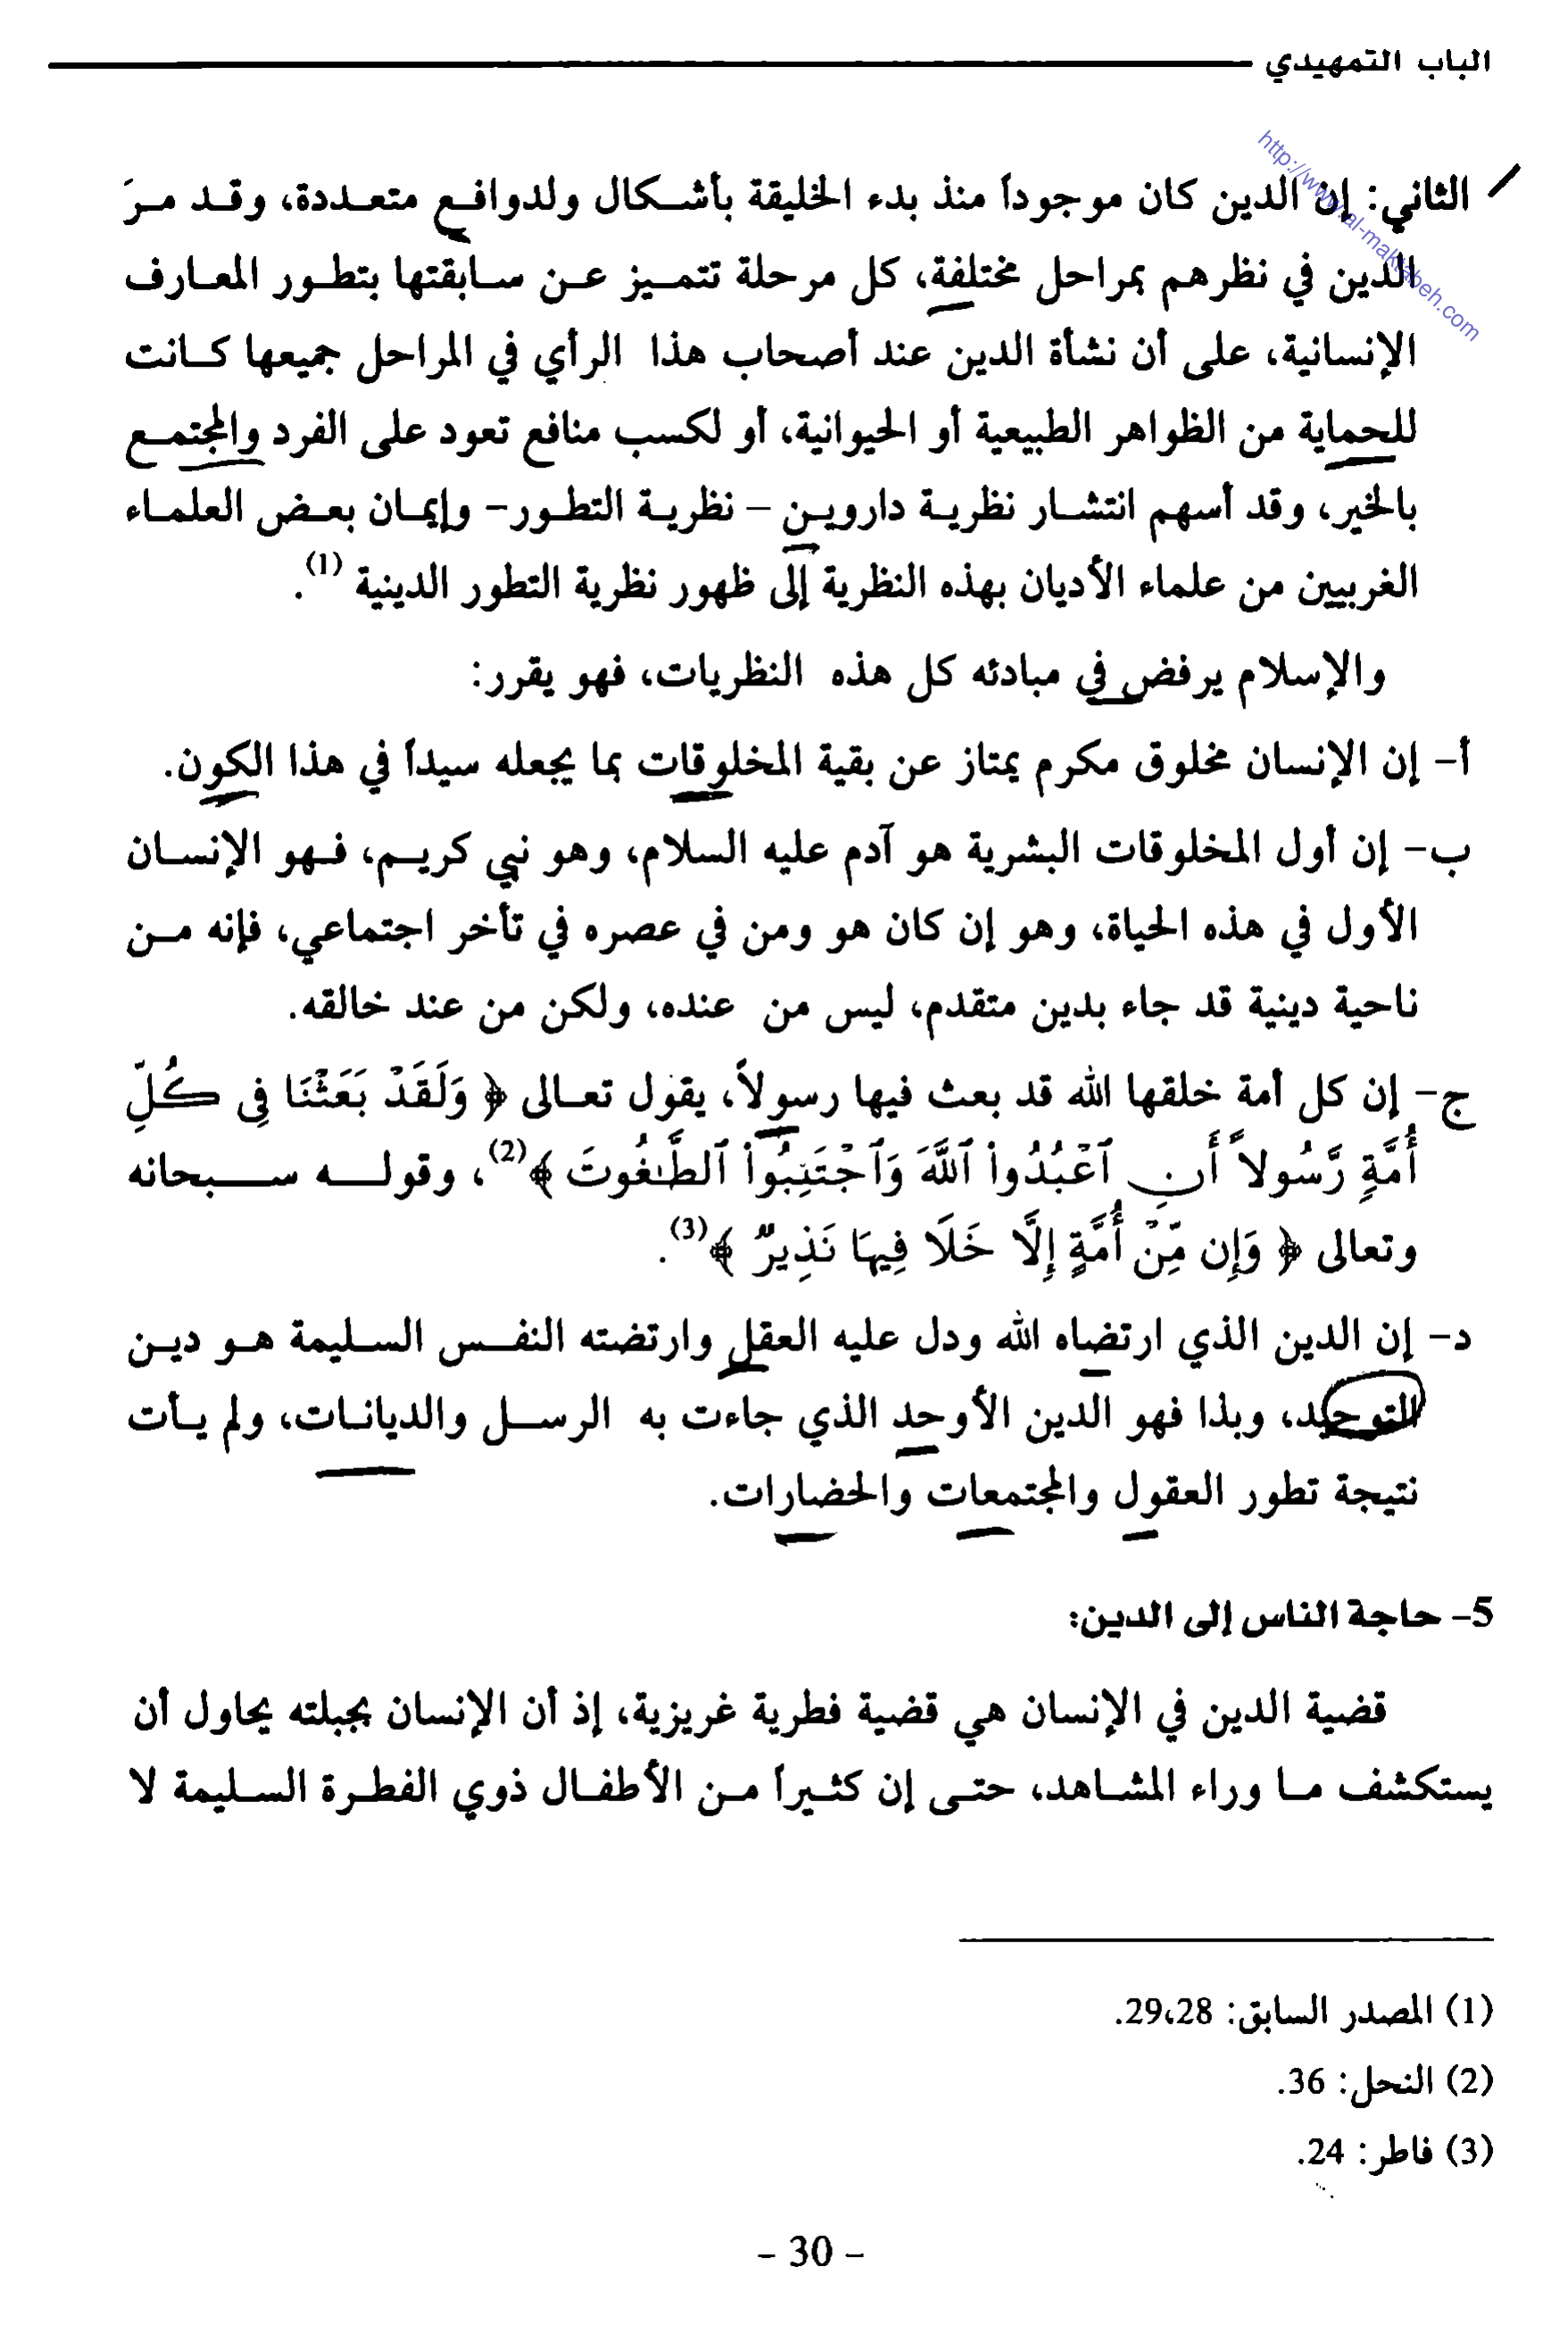 الباب التمهيدي
http://www.al-maktabeh.com
الثاني: إن الدين كان موجوداً منذ بدء الخليقة بأشكال ولدوافع متعددة، وقد مرَ
الدين في نظرهم بمراحل مختلفة، كل مرحلة تتميز عن سابقتها بتطور المعارف
الإنسانية، على أن نشأة الدين عند أصحاب هذا الرأي في المراحل جميعها كانت
للحماية من الظواهر الطبيعية أو الحيوانية، أو لكسب منافع تعود على الفرد والمجتمع
بالخير، وقد أسهم انتشار نظرية داروين – نظرية التطور- وإيمان بعض العلماء
الغربيين من علماء الأديان بهذه النظرية إلى ظهور نظرية التطور الدينية (1).
والإسلام يرفض في مبادئه كل هذه النظريات، فهو يقرر:
أ- إن الإنسان مخلوق مكرم يمتاز عن بقية المخلوقات بما يجعله سيداً في هذا الكون.
ب- إن أول المخلوقات البشرية هو آدم عليه السلام، وهو نبي كريم، فهو الإنسان
الأول في هذه الحياة، وهو إن كان هو ومن في عصره في تأخر اجتماعي، فإنه من
ناحية دينية قد جاء بدين متقدم، ليس من عنده، ولكن من عند خالقه.
ج- إن كل أمة خلقها الله قد بعث فيها رسولاً، يقول تعالى ﴿ وَلَقَدْ بَعَثْنَا فِى كُلِّ
أُمَّةٍ رَّسُولاً أَنِ ٱعْبُدُواْ ٱللَّهَ وَٱجْتَنِبُواْ ٱلطَّـٰغُوتَ ﴾(2)، وقوله سبحانه
وتعالى ﴿ وَإِن مِّنْ أُمَّةٍ إِلَّا خَلَا فِيهَا نَذِيرٌ ﴾(3).
د- إن الدين الذي ارتضاه الله ودل عليه العقل وارتضته النفس السليمة هو دين
التوحيد، وبذا فهو الدين الأوحد الذي جاءت به الرسل والديانات، ولم يأت
نتيجة تطور العقول والمجتمعات والحضارات.
5- حاجة الناس إلى الدين:
قضية الدين في الإنسان هي قضية فطرية غريزية، إذ أن الإنسان بجبلته يحاول أن
يستكشف ما وراء المشاهد، حتى إن كثيراً من الأطفال ذوي الفطرة السليمة لا
(1) المصدر السابق: 28،29.
(2) النحل: 36.
(3) فاطر: 24.
- 30 -